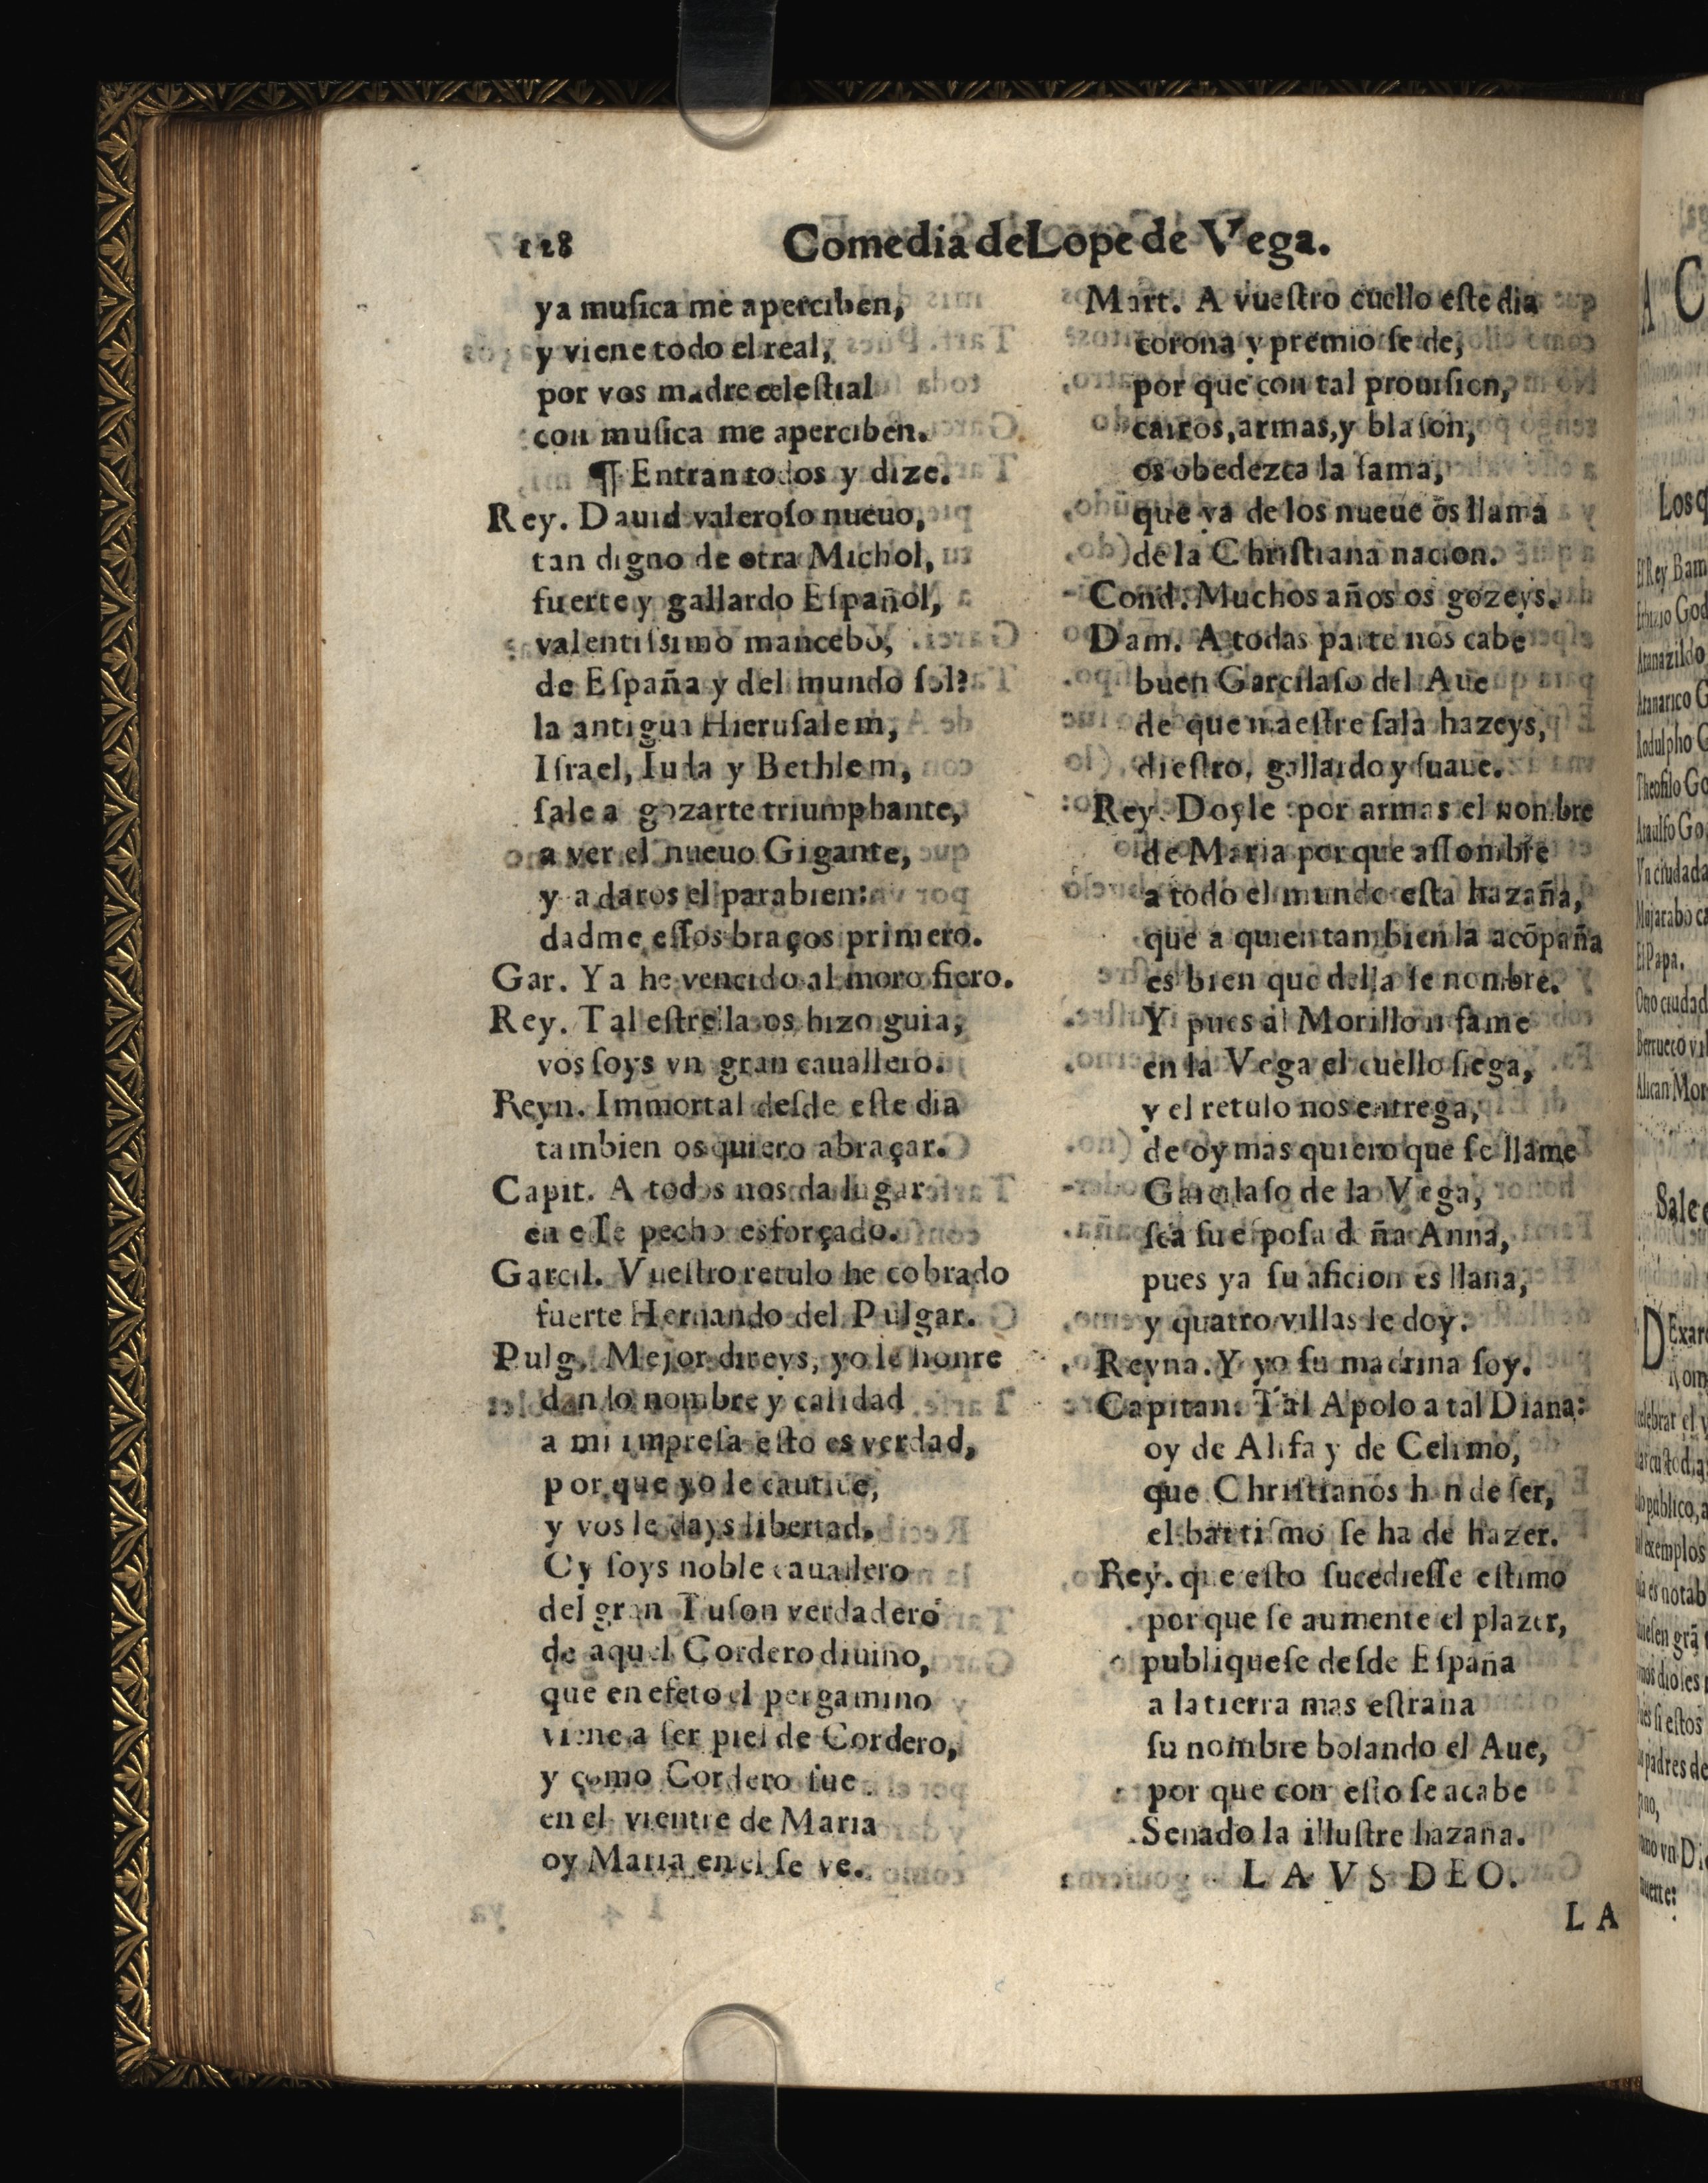 128
Comedia de Lope de Vega.
ya musica me aperciben,
y viene todo el real,
por vos madre celestial
con musica me aperciben.
¶ Entran todos y dize.
Rey. Dauid valeroso nueuo,
tan digno de otra Michol,
fuerte y gallardo Español,
valentissimo mancebo,
de España y del mundo sol?
la antigua Hierusalem,
Israel, Iuda y Bethlem,
sale a gozarte triumphante,
a ver el nueuo Gigante,
y a daros el parabien:
dadme essos braços primero.
Gar. Ya he vencido al moro fiero.
Rey. Tal estrella os hizo guia,
vos soys vn gran cauallero.
Reyn. Immortal desde este dia
tambien os quiero abraçar.
Capit. A todos nos da lugar
en esse pecho esforçado.
Garcil. Vuestro retulo he cobrado
fuerte Hernando del Pulgar.
Pulg. Mejor direys, yo le honre
dando nombre y calidad
a mi impresa esto es verdad,
por que yo le cautiue,
y vos le days libertad.
Oy soys noble cauallero
del gran Tuson verdadero
de aquel Cordero diuino,
que en efeto el pergamino
viene a ser piel de Cordero,
y como Cordero fue
en el vientre de Maria
oy Maria en el se ve.
Mart. A vuestro cuello este dia
corona y premio se de,
por que con tal prouision,
carros, armas, y blason,
os obedezca la fama,
que ya de los nueue os llama
de la Christiana nacion.
Cond. Muchos años os gozeys.
Dam. A todas parte nos cabe
buen Garcilaso del Aue
de que maestre sala hazeys,
diestro, gallardo y suaue.
Rey. Doyle por armas el nombre
de Maria porque assombre
a todo el mundo esta hazaña,
que a quien tambien la acõpaña
es bien que della se nombre.
Y pues al Morillo n fame
en la Vega el cuello siega,
y el retulo nos entrega,
de oy mas quiero que se llame
Garcilaso de la Vega,
sea su esposa d ña Anna,
pues ya su aficion es llana,
y quatro villas le doy.
Reyna. Y yo su madrina soy.
Capitan. Tal Apolo a tal Diana:
oy de Alifa y de Celimo,
que Christianos han de ser,
el bautismo se ha de hazer.
Rey. que esto sucediesse estimo
por que se aumente el plazer,
publiquese desde España
a la tierra mas estraña
su nombre bolando el Aue,
por que con esto se acabe
Senado la illustre hazaña.
LAVS DEO.
LA
A C
Los q
El Rey Bam
Atanazildo
Atanarico G
Rodulpho G
Theofilo Go
Ataulfo Go
Vn ciudada
Mujarabo ca
El Papa.
Otro ciudad
Berrueco vil
Alican Mor
Sale